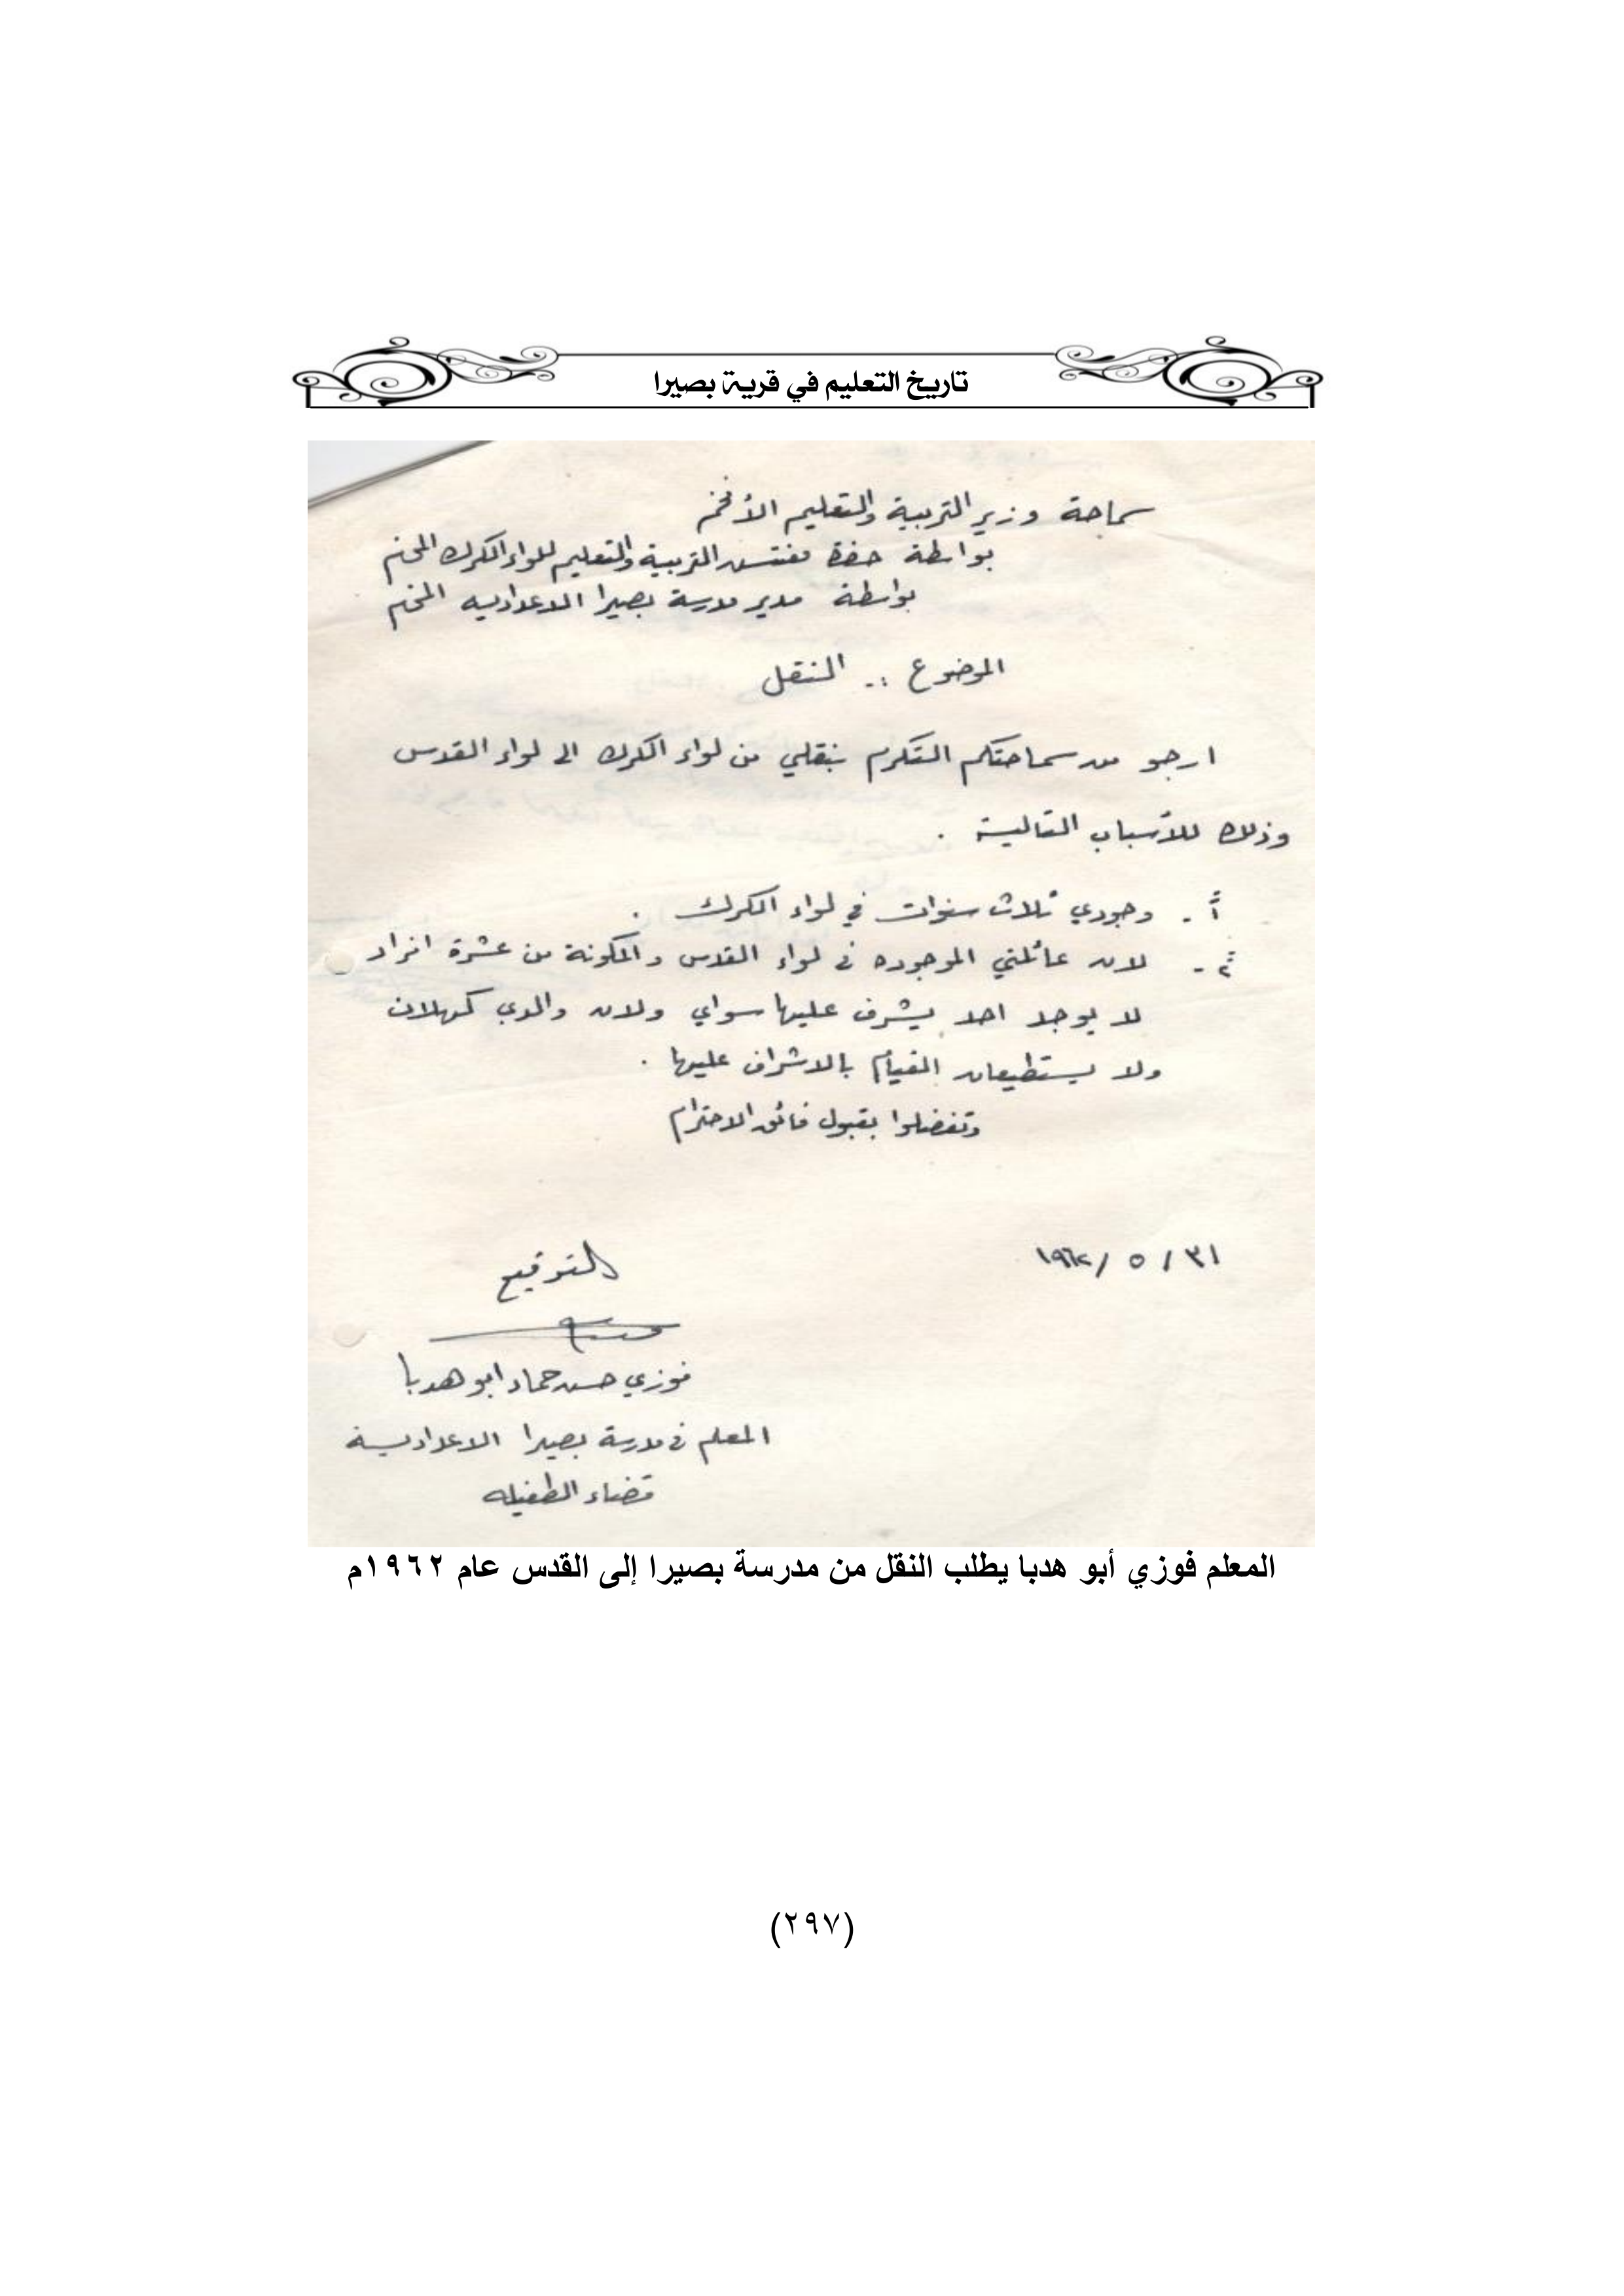 تاريخ التعليم في قرية بصيرا
سماحة وزير التربية والتعليم الأفخم
بواسطة حضرة مفتش التربية والتعليم للواء الكرك المحترم
بواسطة مدير مدرسة بصيرا الاعداديه المحترم
الموضوع :. النقل
ارجو من سماحتكم التكرم بنقلي من لواء الكرك الى لواء القدس
وذلك للأسباب التالية .
أ - وجودي ثلاث سنوات في لواء الكرك .
٢ - لان عائلتي الموجوده في لواء القدس والمكونة من عشرة افراد
لا يوجد احد يشرف عليها سواي ولان والدي كهلان
ولا يستطيعان القيام بالاشراف عليها .
وتفضلوا بقبول فائق الاحترام
٣١ / ٥ / ١٩٦٢
التوقيع
فوزي حسن حماد ابو هدبا
المعلم في مدرسة بصيرا الاعدادية
قضاء الطفيله
المعلم فوزي أبو هدبا يطلب النقل من مدرسة بصيرا إلى القدس عام ١٩٦٢م
(٢٩٧)